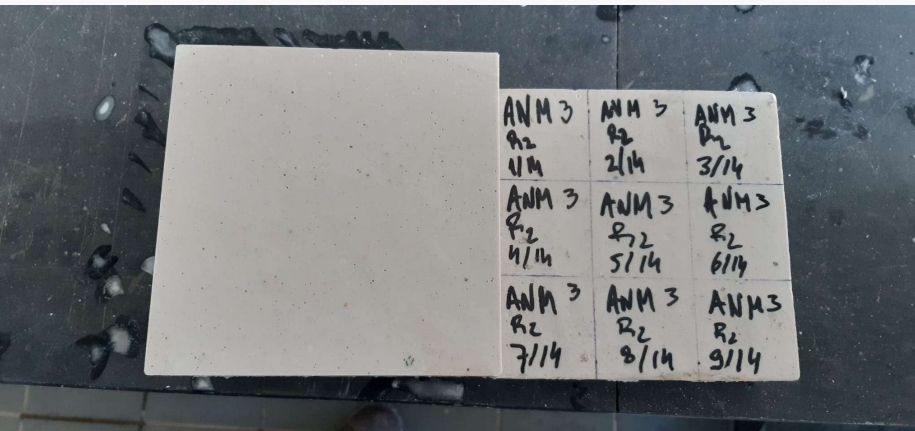 ANM 3
R2
1/14
ANM 3
R2
2/14
ANM 3
R2
3/14
ANM 3
R2
4/14
ANM 3
R2
5/14
ANM 3
R2
6/14
ANM 3
R2
7/14
ANM 3
R2
8/14
ANM 3
R2
9/14